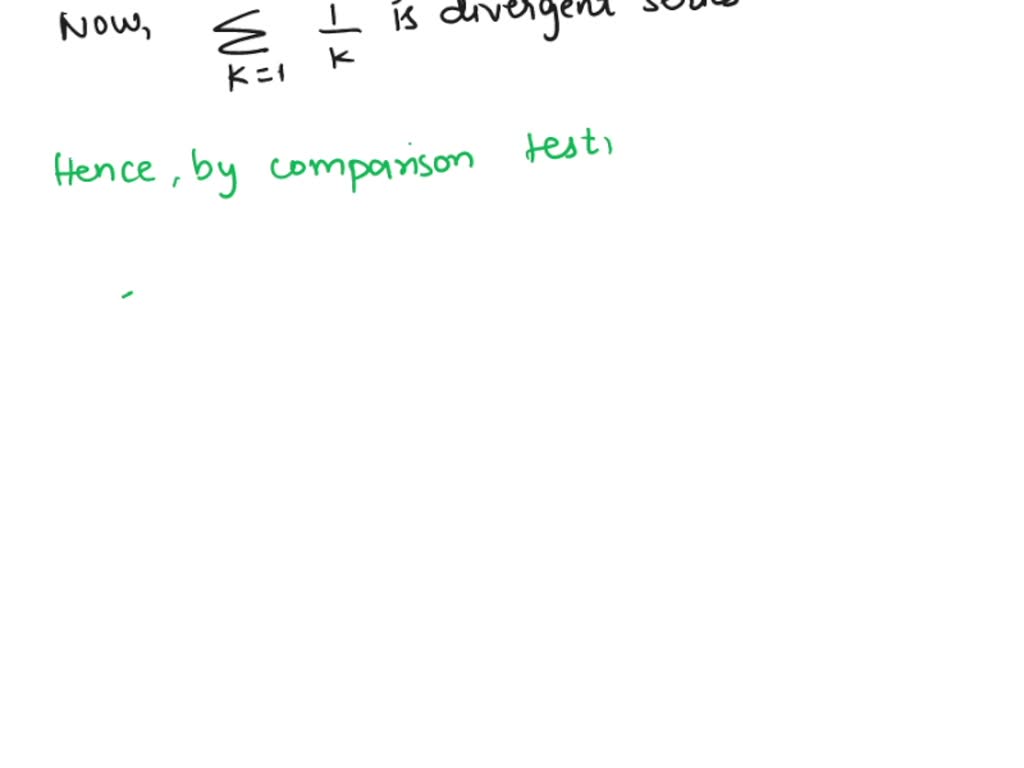 Now, ∑ K=1 1/K is divergent
Hence, by comparison test,